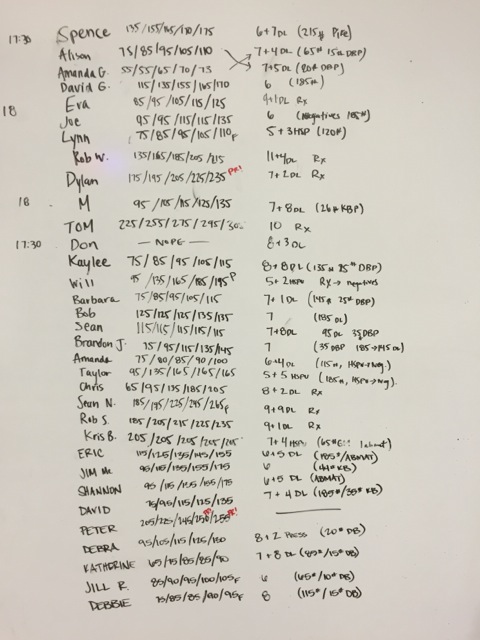 17:30 Spence 135/155/165/170/175 6+7DL (215# Pike)
Alison 75/85/95/105/110 7+4DL (65# 15# DBP)
Amanda G. 55/55/65/70/73 7+5DL (80# DBP)
David G. 115/135/155/165/170 6 (185#)
Eva 85/95/105/115/125 9+1DL Rx
18 Joe 95/95/115/115/135 6 (Negatives 185#)
Lynn 75/85/95/105/110F 5+3HSP (120#)
Rob W. 135/165/185/205/215 11+4DL Rx
Dylan 175/195/205/225/235 PR! 7+2DL Rx
18 M 95/105/115/125/135 7+8DL (26# KBP)
TOM 225/255/275/295/30 10 Rx
17:30 Don — NOPE — 8+3DL
Kaylee 75/85/95/105/115 8+8DL (135# 25# DBP)
Will 95/135/165/185/195F 5+2HSPU Rx → negatives
Barbara 75/85/95/105/115 7+1DL (145# 25# DBP)
Bob 125/125/125/135/135 7 (185DL)
Sean 115/115/115/115/115 7+8DL 95DL 35DBP
Brandon J. 75/95/115/135/145 7 (35DBP 185→145DL)
Amanda 75/80/85/90/100 6+4DL (115#, HSPU→neg.)
Taylor 95/135/165/165/165 5+5HSPU (185#, HSPU→neg.)
Chris 65/95/135/185/205 8+2DL Rx
Sean N. 185/195/225/245/265F 9+9DL Rx
Rob S. 185/205/215/225/235 9+1DL Rx
Kris B. 205/205/205/205/205 7+4HSPU (65# 1abmat)
ERIC 115/125/135/145/155 6+5DL (185#/ABMAT)
JIM Mc 95/115/135/155/175 6 (44# KB)
SHANNON 95/115/135/155/175 6+5DL (ABMAT)
DAVID 75/95/115/125/135 7+4DL (185#/35# KB)
PETER 205/225/245/250/255 PR! PR!
DEBRA 95/105/115/125/130 8+2 PRESS (20# DB)
KATHERINE 65/75/85/85/90 7+8DL (85#/15# DB)
JILL R. 85/90/95/100/105F 6 (65#/10# DB)
DEBBIE 75/85/85/90/95F 8 (115#/15# DB)